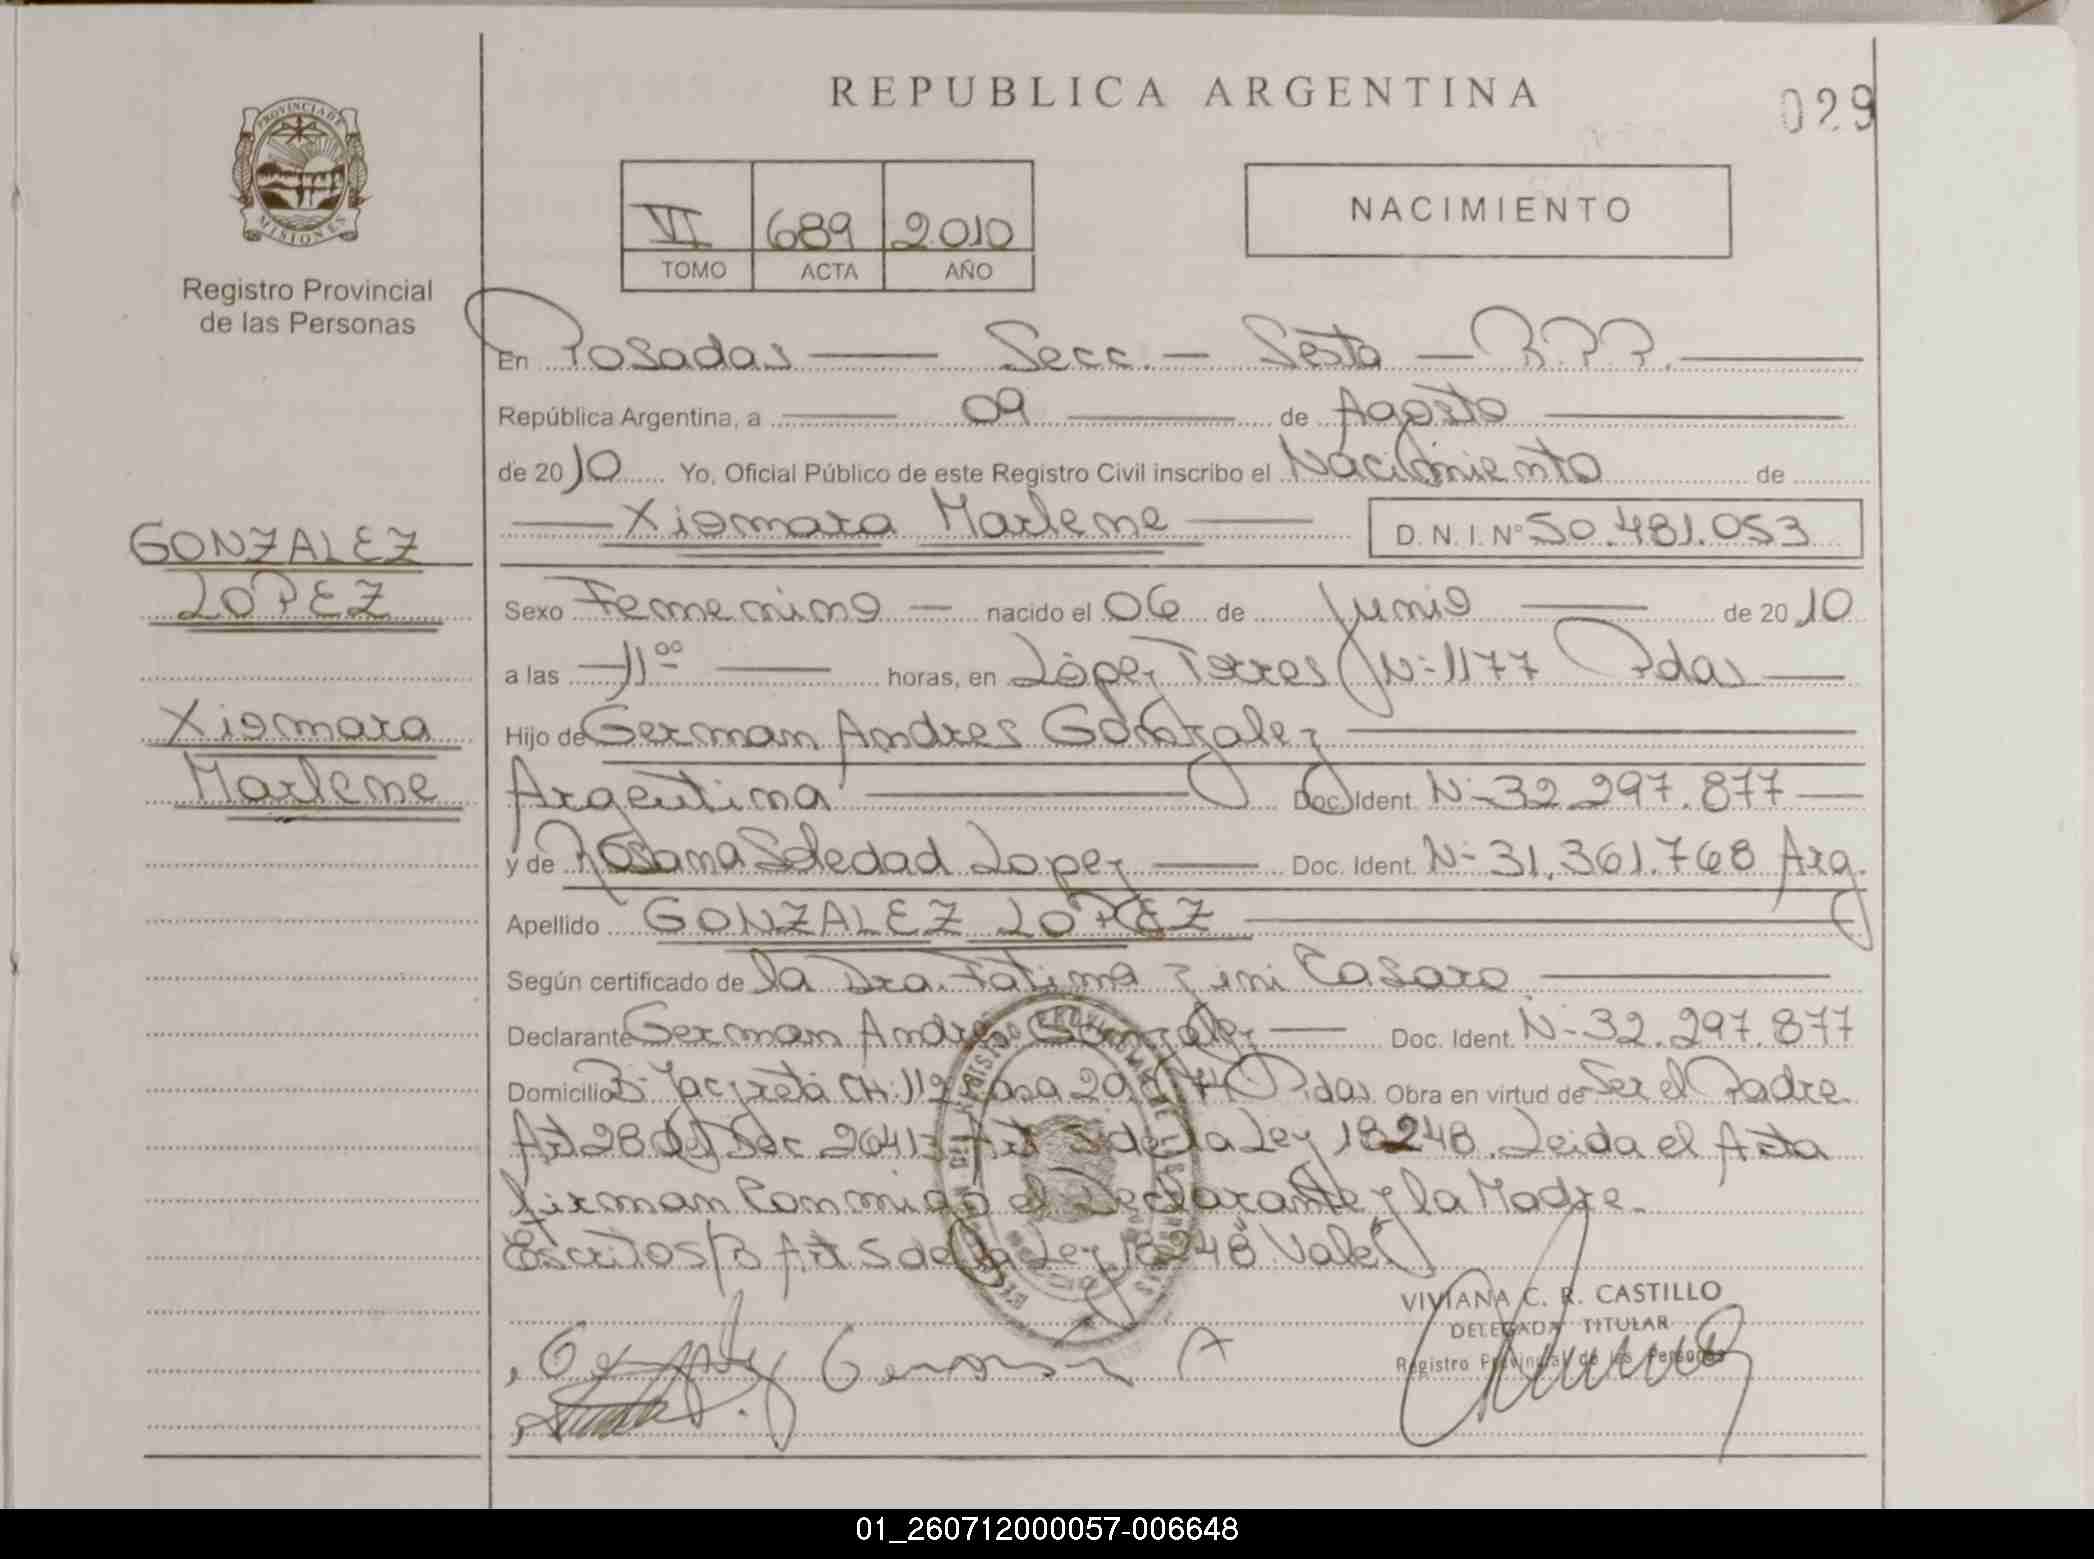 REPUBLICA ARGENTINA
029
PROVINCIA DE
MISIONES
Registro Provincial
de las Personas
VI 689 2010
TOMO ACTA AÑO
NACIMIENTO
En Posadas Secc. Sesta R.P.P.
República Argentina, a 09 de Agosto
de 2010 Yo, Oficial Público de este Registro Civil inscribo el Nacimiento de
Xiomara Marlene D.N.I. Nº 50.481.053
GONZALEZ
LOPEZ
Xiomara
Marlene
Sexo Femenino nacido el 06 de Junio de 2010
a las 11⁰⁰ horas, en López Torres Nº 1177 Pdas
Hijo de German Andres Gonzalez
Argentina Doc. Ident. Nº 32.297.877
y de Rosana Soledad Lopez Doc. Ident. Nº 31.361.768 Arg.
Apellido GONZALEZ LOPEZ
Según certificado de la Dra. Fatima Zini Casaro
Declarante German Andres Gonzalez Doc. Ident. Nº 32.297.877
Domicilio Bº Yacyreta CH. 112 Casa 20 Pdas. Obra en virtud de Ser el Padre
Art 28 del Dec 2041 Art 5 de la Ley 18248. Leida el Acta
firman Conmigo el Declarante y la Madre.
Escritos/B Art 5 de la Ley 18248 Vale
VIVIANA C. R. CASTILLO
DELEGADA TITULAR
Registro Provincial de las Personas
German A
01_260712000057-006648